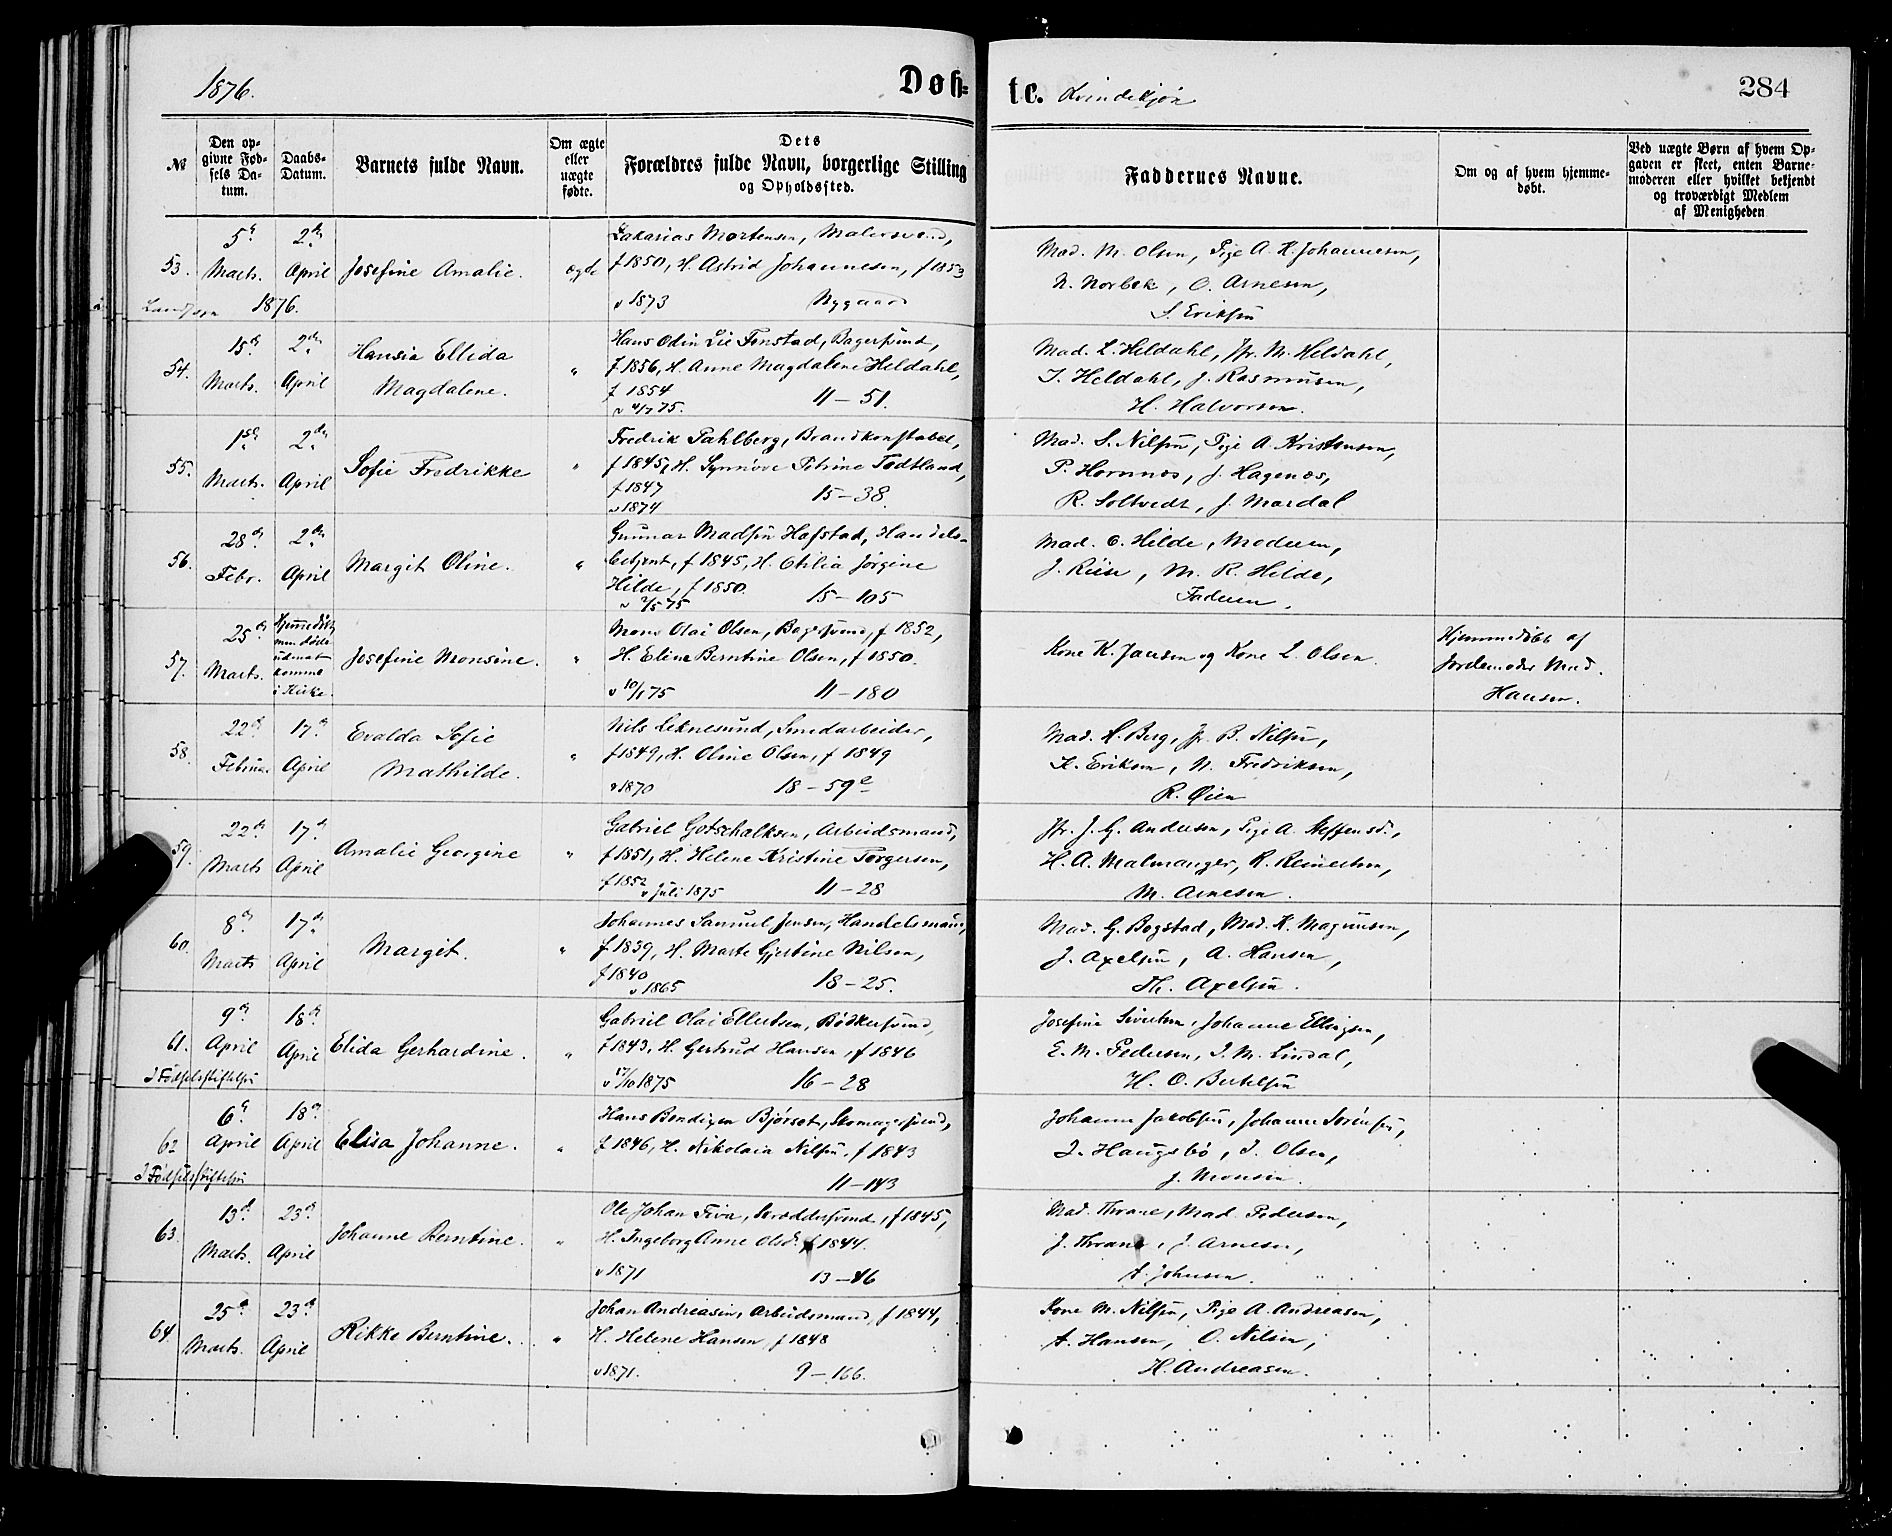 1876.
Døb-
te. Kvindekjøn
284
№
Den op-
givne Fød-
sels Da-
tum.
Daabs-
Datum.
Barnets fulde Navn.
Om ægte
eller
uægte
fødte.
Dets
Forældres fulde Navn, borgerlige Stilling
og Opholdssted.
Faddernes Navne.
Om og af hvem hjemme-
døbt.
Ved uægte Børn af hvem Op-
gaven er skeet, enten Barne-
moderen eller hvilket bekjendt
og troværdigt Medlem
af Menigheden
53.
5te Marts.
2den April
Josefine Amalie.
ægte
Zakarias Mortensen, Malersvend,
f 1850, H. Astrid Johannesen, f 1853
v 1873 Nygaard
Mad. M. Olsen, Pige A. K. Johannesen,
N. Norbek, O. Arnesen,
S. Eriksen
1876.
54.
15de Marts.
2den April
Hansia Ellida
Magdalene.
"
Hans Odin Lie Fenstad, Bagersvend,
f 1856, H. Anne Magdalene Heldahl,
f 1854
v 4/7 75. 11 – 51.
Mad. L. Heldahl, Jfr. M. Heldahl,
I. Heldahl, J. Rasmusen,
H. Halvorsen.
55.
1ste Marts.
2den April
Sofie Fredrikke
"
Fredrik Pahlberg, Brandkonstabel,
f 1845, H. Synnöve Petrine Todtland,
f 1847
v 1874 15 – 38.
Mad. S. Nilsen, Pige A. Kristensen,
P. Hornnes, J. Hagenes,
R. Soltvedt, J. Mardal
56.
28de Febr.
2den April
Margit Oline.
"
Gunnar Madsen Hafstad, Handels-
betjent, f 1845, H. Othilia Jörgine
Hilde, f 1850.
v 2/5 75 15 – 105
Mad. O. Hilde, Moderen,
J. Riise, M. R. Hilde,
Faderen.
57.
25de Marts.
Hjemmedöbt,
men döde
uden at
komme
i Kirke.
Josefine Monsine.
"
Mons Olai Olsen, Bagersvend, f 1852,
H. Eline Berntine Olsen, f 1850.
v 10/1 75 11 – 180
Kone K. Jansen og Kone L. Olsen.
Hjemmedöbt af
Jordemoder Mad.
Hansen.
58.
22de Februar
17de April
Evalda Sofie
Mathilde.
"
Nils Leknesund, Smedarbeider,
f 1849, H. Oline Olsen, f 1849
v 1870 18 – 59a
Mad. H. Berg, Jfr. B. Nilsen,
K. Eriksen, N. Fredriksen,
R. Øien
59.
22de Marts
17de April
Amalie Georgine
"
Gabriel Gotschalksen, Arbeidsmand,
f 1851, H. Helene Kristine Torgersen,
f 1852
v Juli 1875 11 – 28
Jfr. J. G. Andersen, Pige A. Steffensd.,
H. A. Malmanger, R. Reinertsen,
M. Arnesen.
60.
8de Marts
17de April
Margit.
"
Johannes Samuel Jensen, Handelsmand,
f 1839, H. Marte Gjertine Nilsen,
f 1840
v 1865 18 – 25.
Mad. G. Bogstad, Mad. K. Magnusen,
J. Axelsen, A. Hansen,
Th. Axelsen.
61.
9de April
18de April
I Födselsstiftelsen
Elida Gerhardine.
"
Gabriel Olai Ellertsen, Bödkersvend
f 1843, H. Gertrud Hansen, f 1846
v 17/10 1875 16 – 28
Josefine Sivertsen, Johanne Ellingsen,
E. M. Pedersen, I. M. Lindal,
H. O. Bertelsen
62
6te April
18de April
I Födselsstiftelsen
Elisa Johanne.
"
Hans Bendixen Bjørset, Skomagersvend,
f 1846, H. Nikolaia Nilsen, f 1843
11 – 143
Johanne Jacobsen, Johanne Sörensen,
I. Haugsbö, I. Olsen,
J. Monsen.
63.
13de Marts.
23de April
Johanne Berntine.
"
Ole Johan Tiva, Skræddersvend, f 1845,
H. Ingeborg Anne Olsd. f 1844.
v 1871 13 – 46
Mad. Thrane, Mad. Pedersen,
J. Thrane, J. Arnesen,
A. Johnsen.
64.
25de Marts.
23de April
Rikke Berntine.
"
Johan Andreasen, Arbeidsmand, f 1844,
H. Helene Hansen, f 1848
v 1871. 9 – 166.
Kone M. Nilsen, Pige A. Andreasen,
A. Hansen, O. Nilsen,
H. Andreasen.